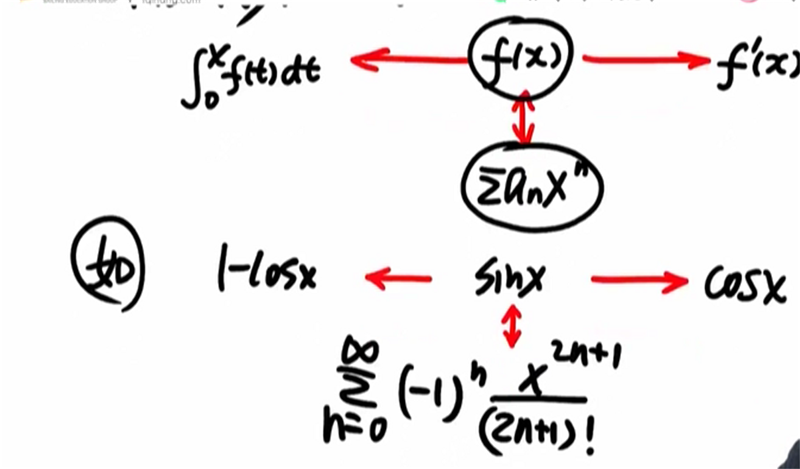 ∫₀ˣ f(t)dt ← f(x) → f'(x)
↕
Σaₙxⁿ
如 1-cosx ← sinx → cosx
↕
∞
Σ (-1)ⁿ x²ⁿ⁺¹/(2n+1)!
n=0